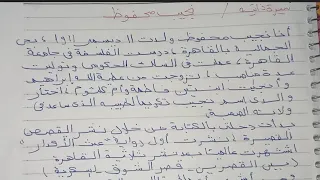 سيرة ذاتية نجيب محفوظ
أنا نجيب محفوظ ولدت 11 ديسمبر 1911، بحي
الجمالية بالقاهرة، درست الفلسفة في جامعة
القاهرة، عملت في السلك الحكومي وتوليت
عدة مناصب، تزوجت من عطية الله إبراهيم
وأنجبت ابنتين فاطمة وأم كلثوم، اختار
والدي اسم نجيب تقديرا لطبيبه الذي ساعد في
ولادته
بدأت رحلتي بالكتابة من خلال نشر القصص
القصيرة، نشرت أول رواية "عبث الأقدار"
اشتهرت عالميا بعد نشر ثلاثية القاهرة
(بين القصرين - قصر الشوق - السكرية)